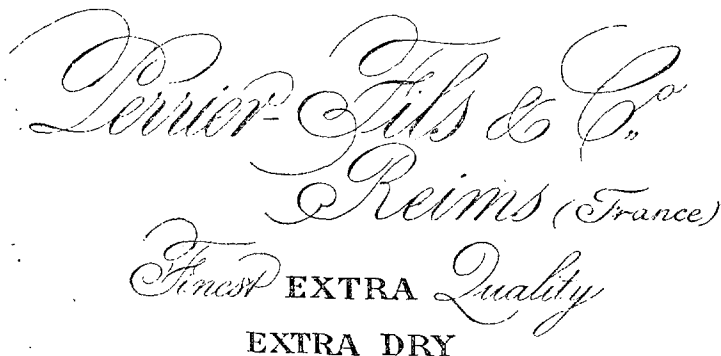 Perrier-Fils & Co.
Reims (France)
Finest EXTRA Quality
EXTRA DRY